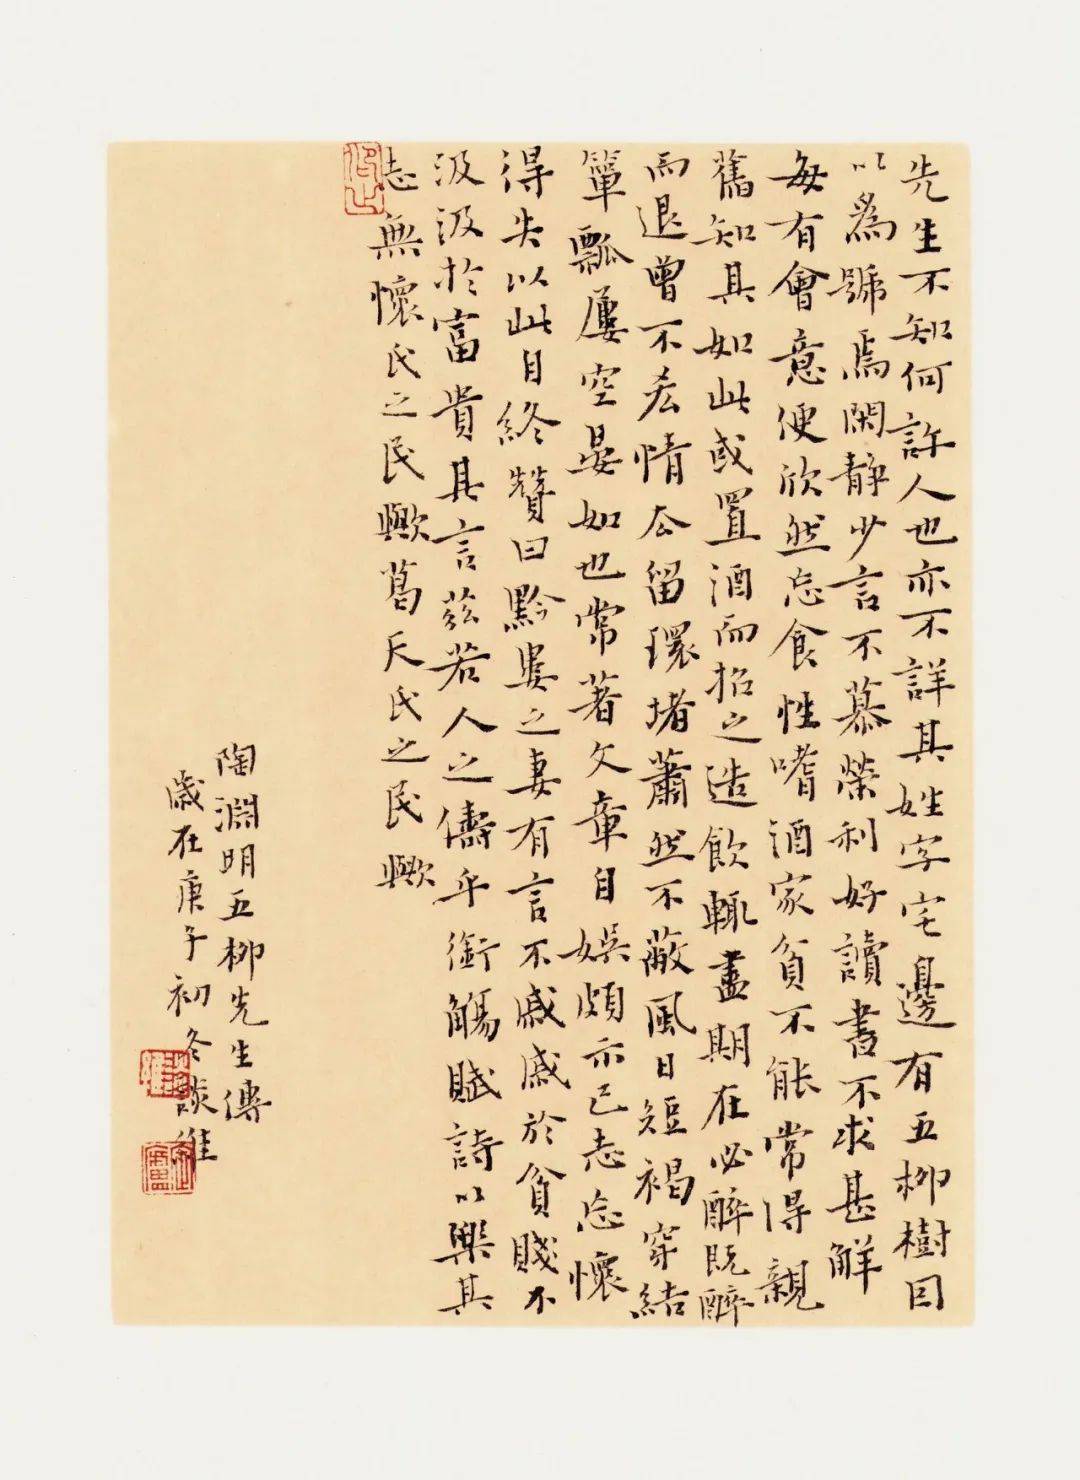 先生不知何許人也亦不詳其姓字宅邊有五柳樹因
以為號焉閑静少言不慕榮利好讀書不求甚解
每有會意便欣然忘食性嗜酒家貧不能常得親
舊知其如此或置酒而招之造飲輒盡期在必醉既醉
而退曾不吝情去留環堵蕭然不蔽風日短褐穿結
簞瓢屢空晏如也常著文章自娱頗示己志忘懷
得失以此自終贊曰黔婁之妻有言不戚戚於貧賤不
汲汲於富貴其言兹若人之儔乎銜觴賦詩以樂其
志無懷氏之民歟葛天氏之民歟
陶淵明五柳先生傳
歲在庚子初冬談維